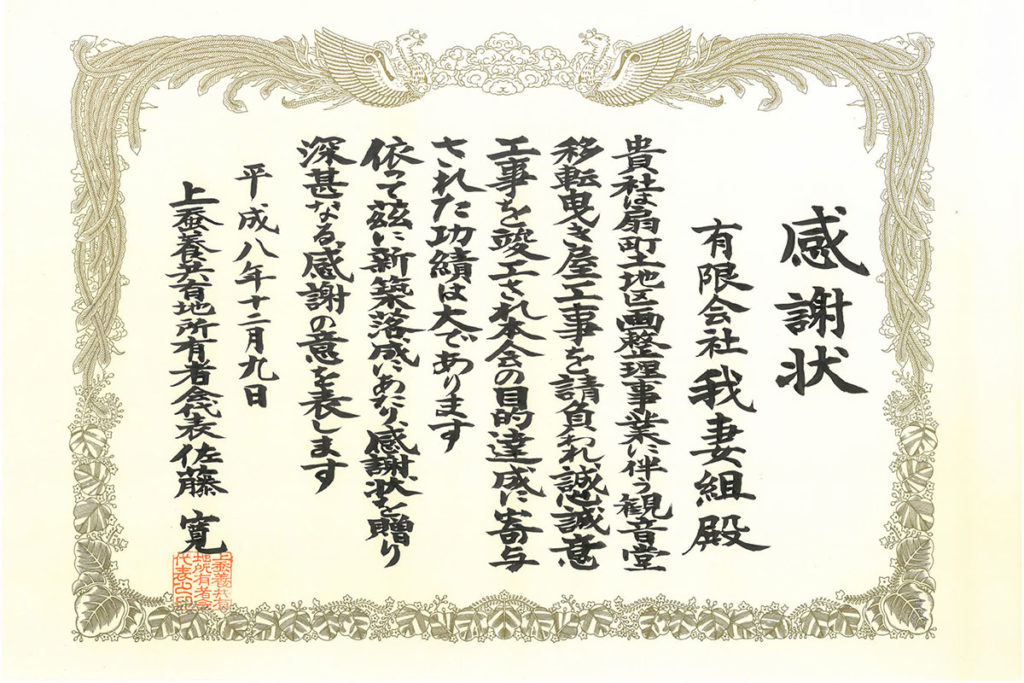 感謝状
有限会社我妻組殿
貴社は扇町土地区画整理事業に伴う観音堂
移転曳き屋工事を請負われ誠心誠意
工事を竣工され本会の目的達成に寄与
された功績は大であります
依って茲に新築落成にあたり感謝状を贈り
深甚なる感謝の意を表します
平成八年十二月九日
上蚕養共有地所有者会代表佐藤寛
上蚕養共有
地所有者会
代表之印